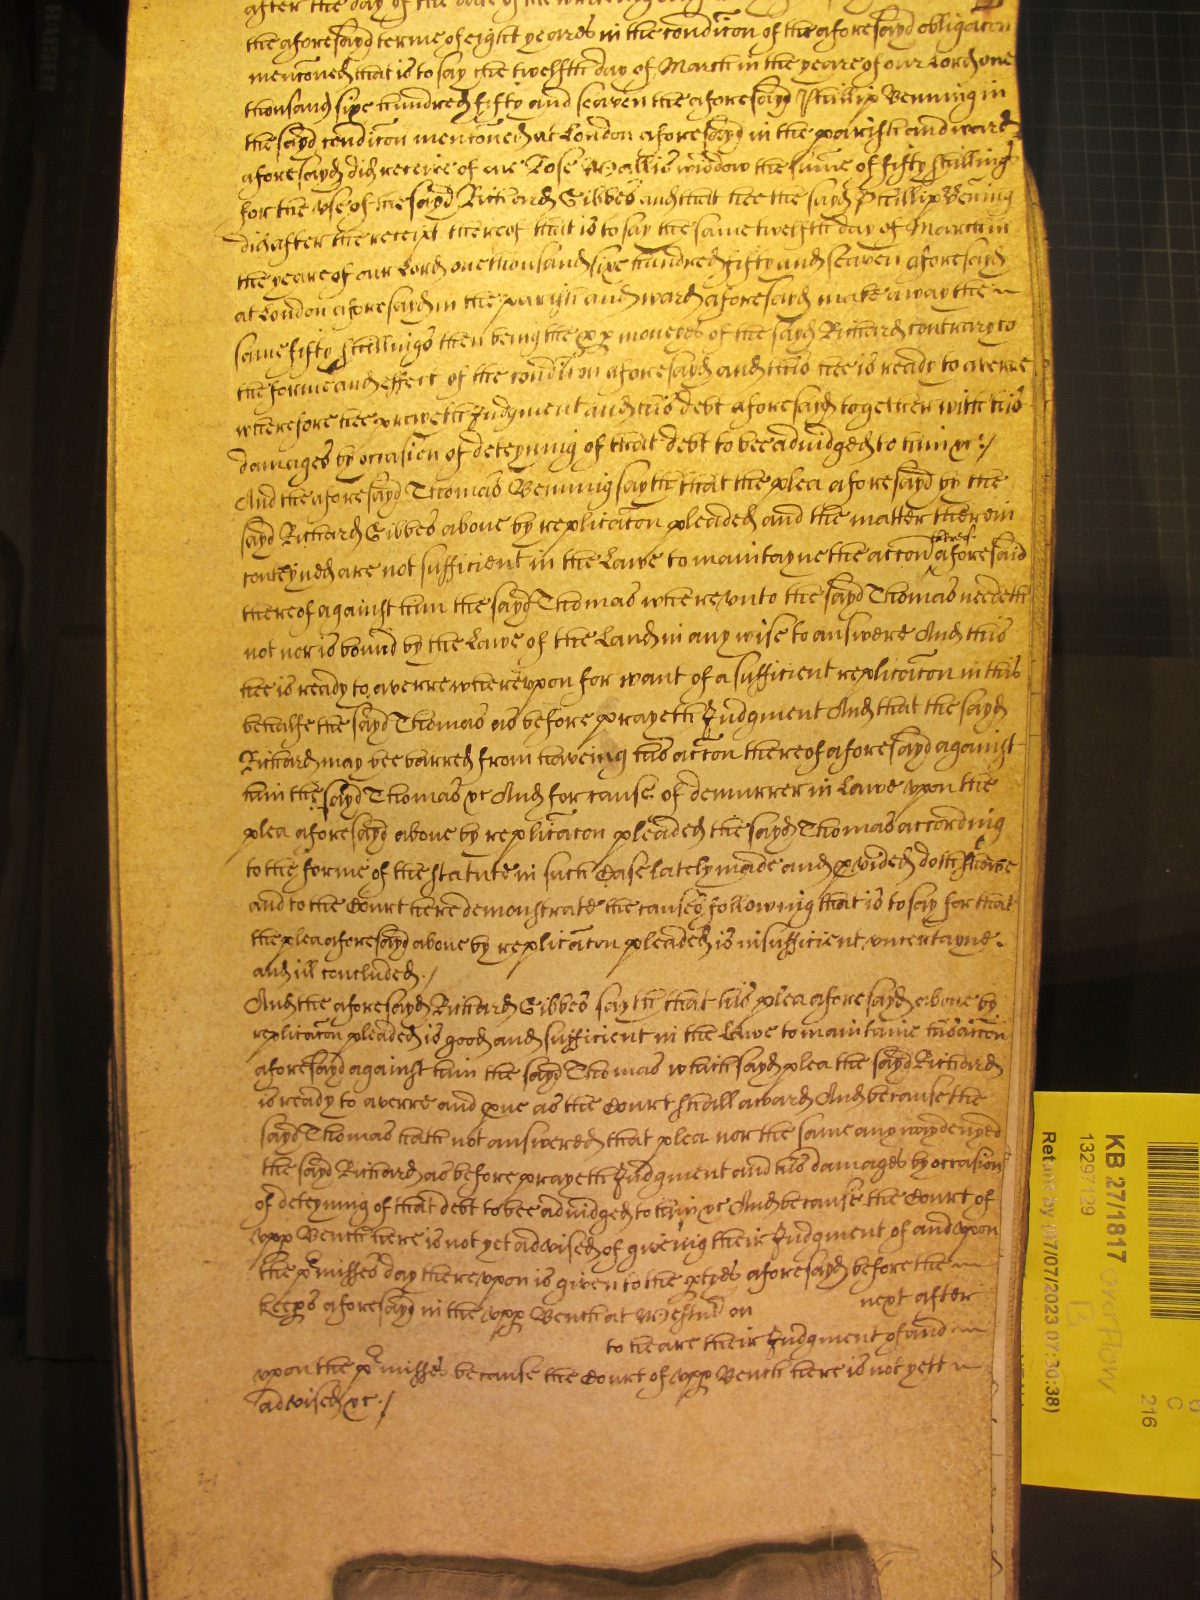 after the day of the date of the writeing
the aforesayd terme of eight yeares in the condicon of the aforesayd obligacon
menconed that is to say the twelfth day of March in the yeare of our Lord one
thousand sixe hundred fifty and seaven the aforesayd Phillip Benning in
the sayd condicon menconed at London aforesayd in the parish and ward
aforesayd did receive of one Rose Wallis widdow the sume of fifty shillings
for the use of the sayd Richard Gibbes and that hee the sayd Phillip Bening
did after the receipt thereof that is to say the same twelfth day of March in
the yeare of our Lord one thousand sixe hundred fifty and seaven aforesayd
at London aforesayd in the parish and ward aforesayd make away the
same fifty shillings then being the pp moneyes of the sayd Richard contrary to
the forme and effect of the condicon aforesayd and this hee is ready to averre
wherefore hee prayeth Judgment and his debt aforesayd together with his
damages by occasion of deteyning of that debt to bee adiudged to him &c /
And the aforesayd Thomas Benning sayth that the plea aforesayd by the
sayd Richard Gibbes above by replicacon pleaded and the matter therein
conteyned are not sufficient in the Lawe to maintayne the accon thereof aforesaid
thereof against him the sayd Thomas whereunto the sayd Thomas needeth
not nor is bound by the Lawe of the Land in any wise to answere And this
hee is ready to averre whereupon for want of a sufficient replicacon in this
behalfe the sayd Thomas as before prayeth Judgment And that the sayd
Richard may bee barred from haveing his accon thereof aforesayd against
him the sayd Thomas &c And for cause of demurrer in Lawe upon the
plea aforesayd above by replicacon pleaded the sayd Thomas according
to the forme of the statute in such Case lately made and pvided doth shewe
and to the Court here demonstrate the causes following that is to say for that
the plea aforesayd above by replicacon pleaded is insufficient uncertayne
and ill concluded /
And the aforesayd Richard Gibbes sayth that his plea aforesayd above by
replicacon pleaded is good and sufficient in the Lawe to maintaine his accon
aforesayd against him the sayd Thomas which sayd plea the sayd Richard
is ready to averre and pve as the Court shall award And because the
sayd Thomas hath not answered that plea nor the same any way denyed
the sayd Richard as before prayeth Judgment and his damages by occasion
of deteyning of that debt to bee adiudged to him &c And because the Court of
upp Bench here is not yet advised of giveing their Judgment of and upon
the pmisses day thereupon is given to the ptyes aforesayd before the
keeps aforesayd in the upp Bench at Westm on next after
to heare their Judgment of and
upon the pmisses because the Court of upp Bench here is not yett
advised &c /
KB 27/1817
13297129
Return by (17/07/2023 07:30:38)
overflow
C
216